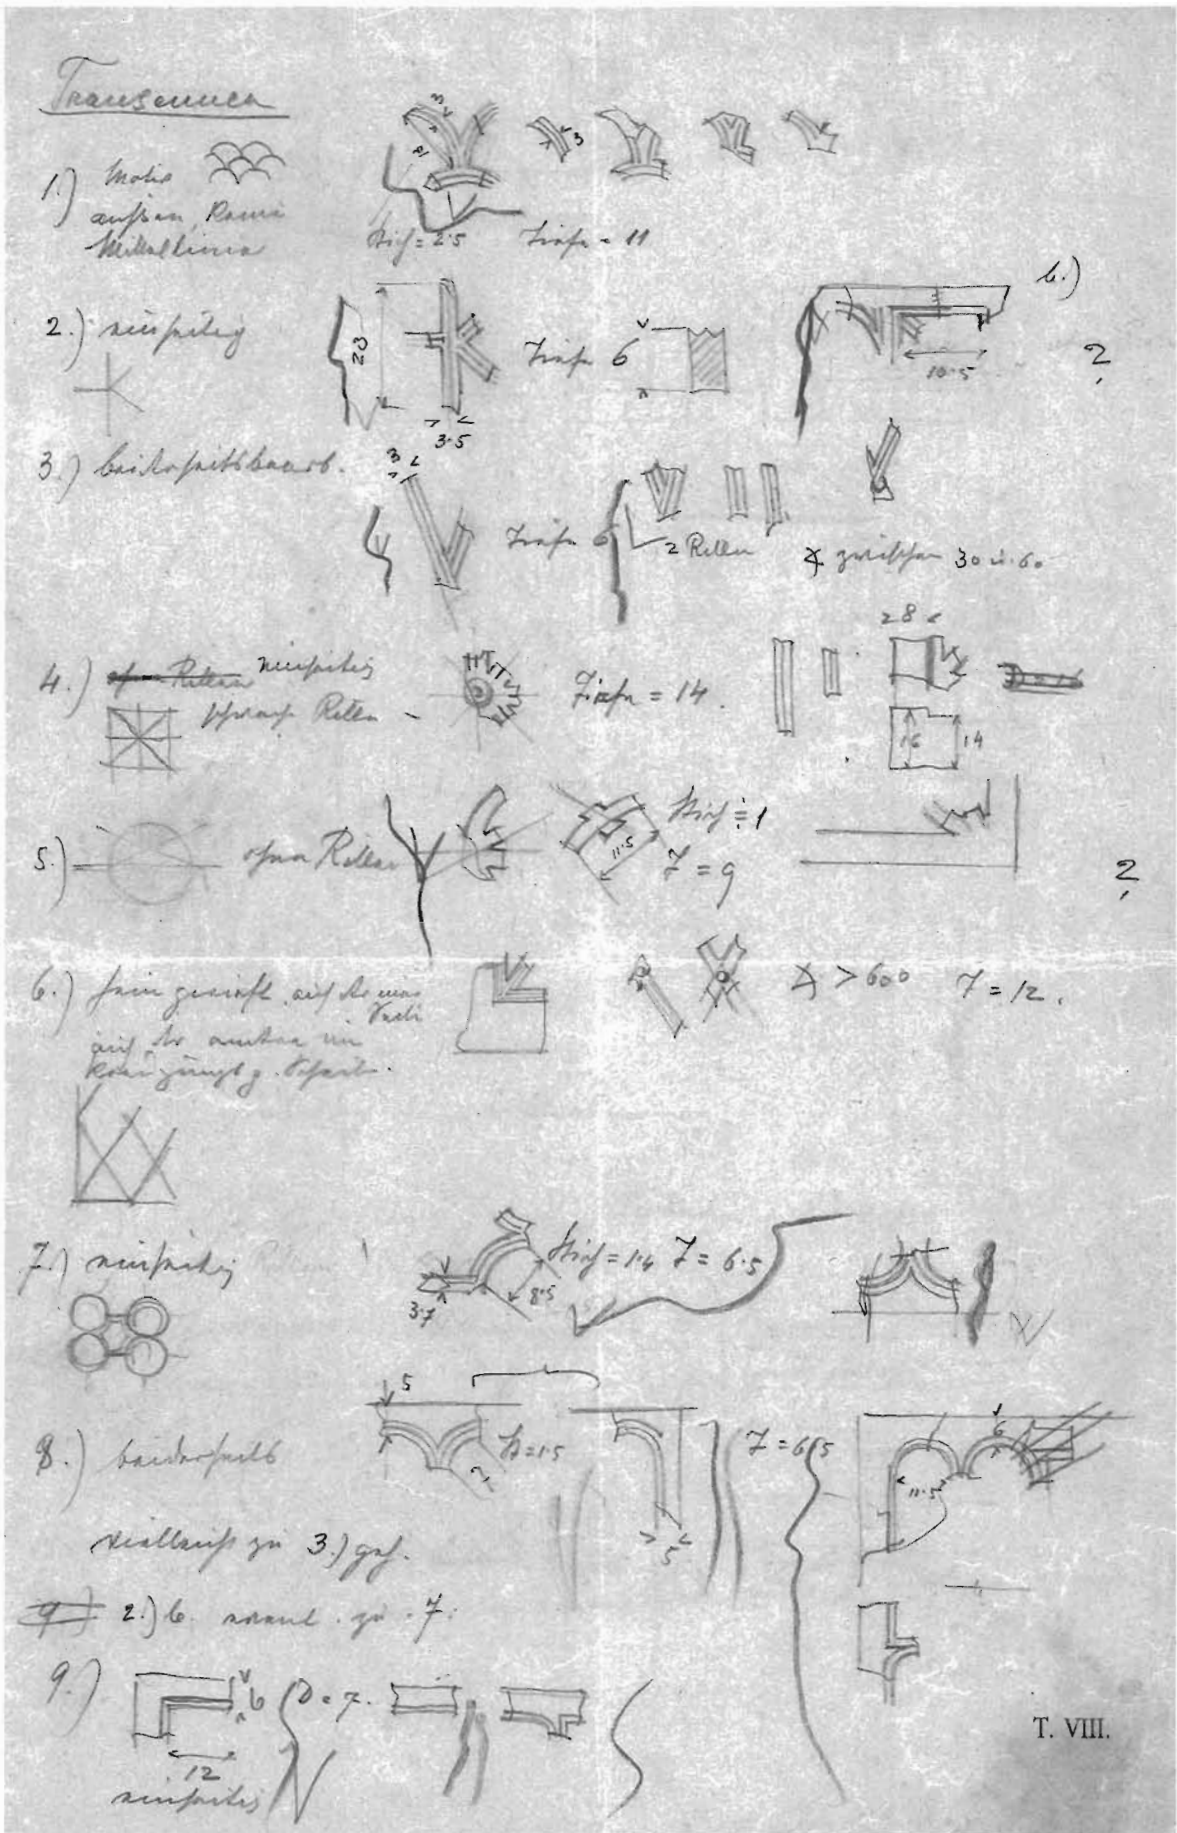 Transennen
1.) Motiv
außen, Raum
Mittellinie
3
3
Stich = 2.5 Tiefe = 11
2.) einseitig
23
3.5
Tiefe 6
b.)
10.5
?
3.) beiderseits bearb.
3
Tiefe 6
2 Rillen
∢ zwischen 30 u. 60
4.) ohne Rillen einseitig
schwache Rillen
Tiefe = 14.
28
16 14
5.) ohne Rillen
11.5
Stich = 1
T = 9
?
6.) fein gerieft auf der einen Seite
auf der anderen im
∢ > 60° T = 12.
7.) einseitig
3.7
8.5
Stich = 1.4 T = 6.5
8.) beiderseits
5
St = 1.5
7
5
T = 6.5
6
11.5
vielleicht zu 3.) geh.
9) 2.) b. event. zu 7.
9.)
6
D = 7.
12
einseitig
T. VIII.